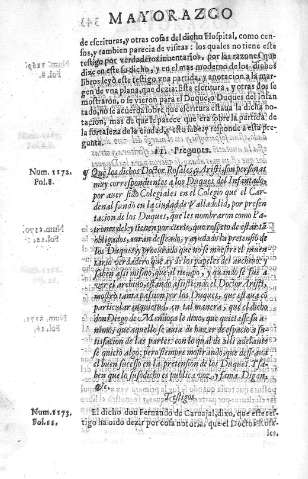 MAYORAZGO
de escrituras, y otras cosas del dicho Hospital, como cen-
sos, y tambien parecia de visitas: los quales no tiene este
testigo por verdaderos inuentarios, por las razones que
dize en este su dicho, y en el mas moderno de los dichos
libros leyò este testigo vna partida, y anotacion a la mar-
gen de vna plana, que dezia: Esta escritura, y otras dos se
mostraron, o se vieron para el Duque
no, no se acuerda sobre que escritura estaua la dicha no-
tacion, mas de que le parece que era sobre la partida de
la fortaleza de la ciudad, y esto sabe, y responde a esta pre-
gunta.
11. Pregunta.
Num. 1172.
Fol. 8.
Que los dichos Doctor Rosales, y Aristi son personas
muy correspondientes a los Duques del Infantado,
por auer sido Colegiales en el Colegio que el Car-
denal fundò en la ciudad de Valladolid, por presen-
tacion de los Duques, que les nombraron como Pa-
trones del, y tienen por cierto, que respeto de estarles
obligados, auran desseado, y ayudado la pretension
de los Duques, procurando que no se muestre el inuen-
tario verdadero que ay de los papeles del archiuo: y
saben assimismo, que al tiempo, y quando se fue a
ver el archiuo, estando assistiendo el Doctor Aristi,
mostrò tanta passion por los Duques, que assi a
particular inquietud, en tal manera, que el dicho
don Diego de Mendoça le dixo, que quietasse el a-
nimo, que aquello se auia de hazer de espacio a sa-
tisfacion de las partes: con lo qual de alli adelante
se quietò algo: pero siempre mostrando que dessea
el buen sucesso en la pretension de los Duques. Y sa-
ben que lo susodicho es publica voz, y fama. Digan,
&c.
Testigos.
Num. 1173.
Fol. 11.
El dicho don Fernando de Carauajal, dixo, que este tes-
tigo ha oido dezir por cosa notoria, que el Doctor Rosa-
les,